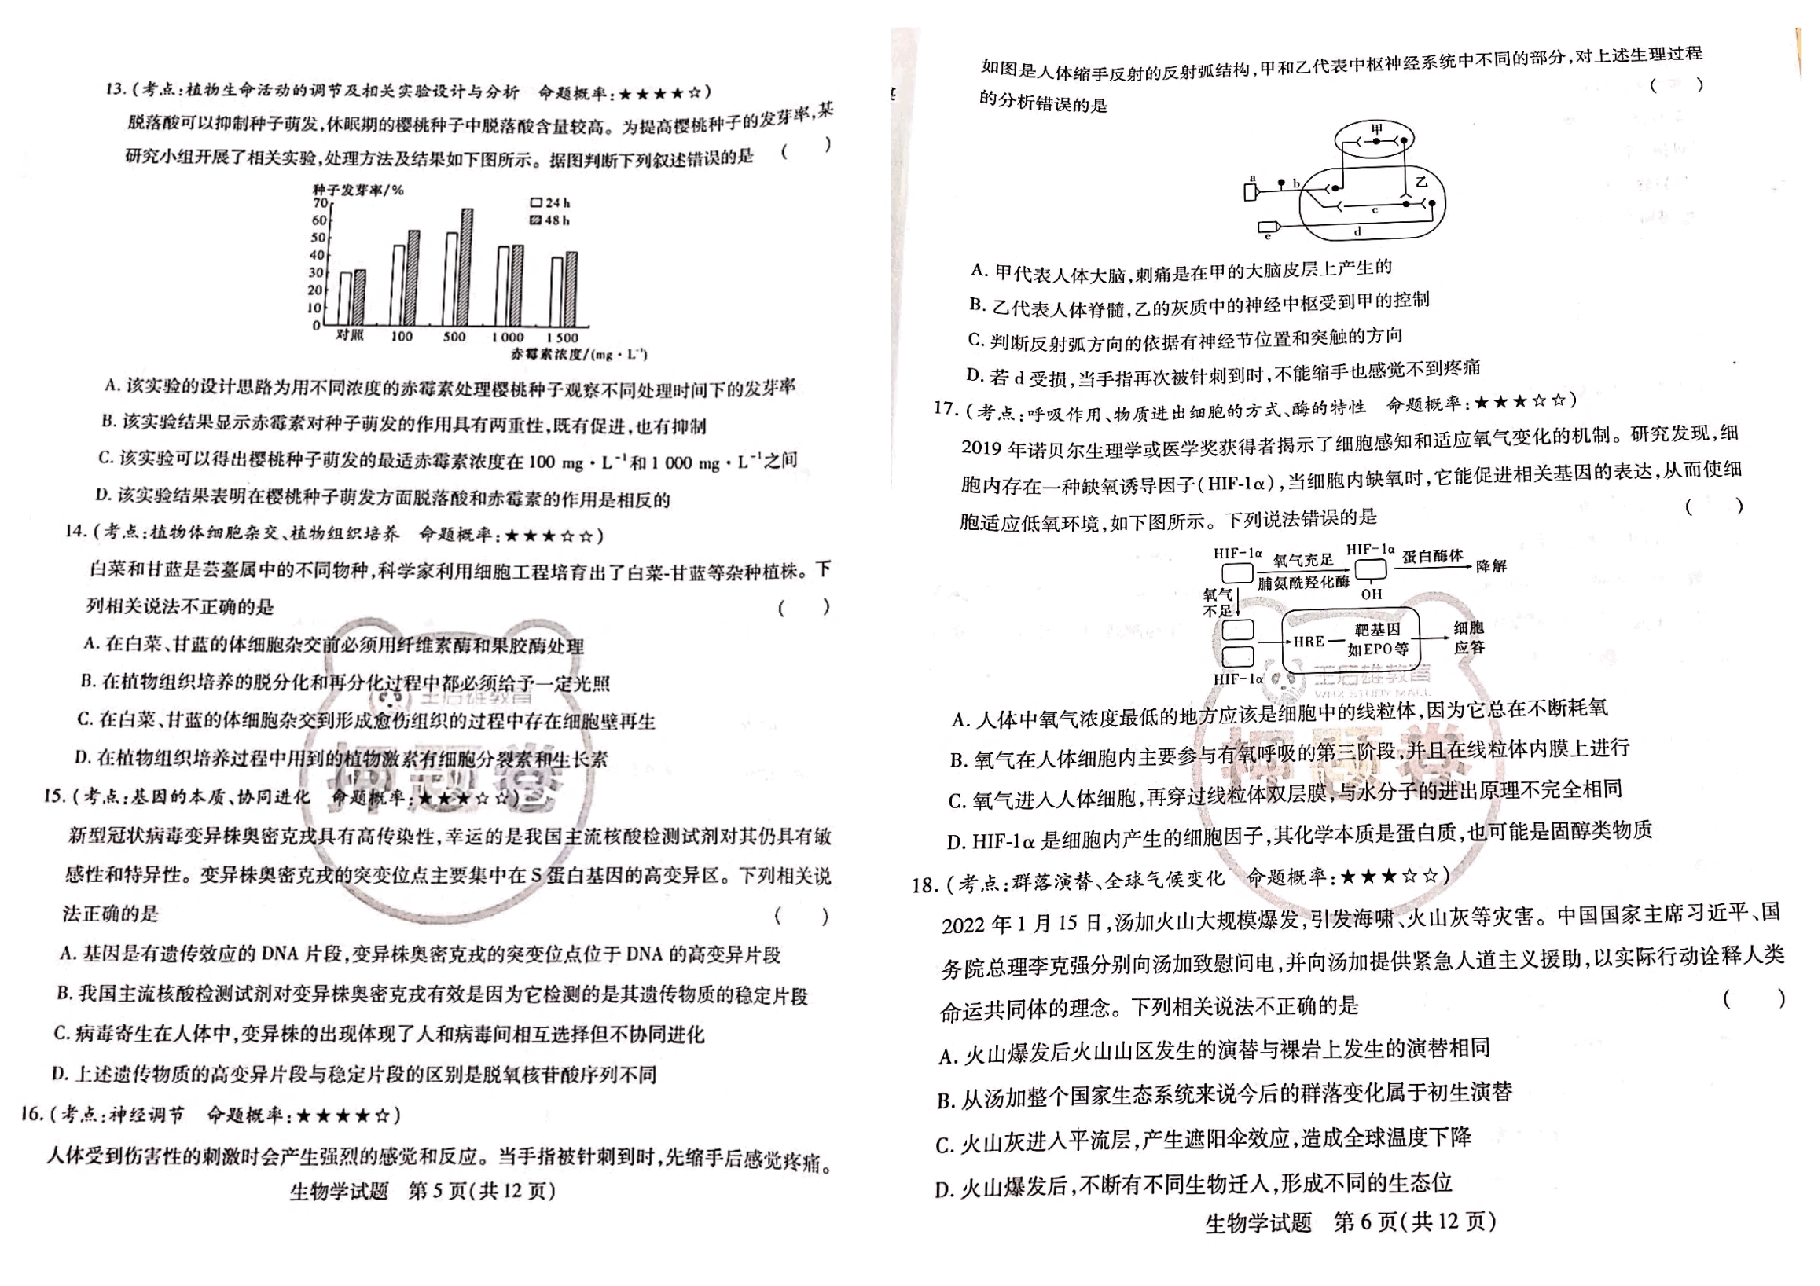 13.(考点:植物生命活动的调节及相关实验设计与分析 命题概率:★★★★☆)
脱落酸可以抑制种子萌发,休眠期的樱桃种子中脱落酸含量较高。为提高樱桃种子的发芽率,某
研究小组开展了相关实验,处理方法及结果如下图所示。据图判断下列叙述错误的是 ( )
种子发芽率/%
70
60
50
40
30
20
10
0
24 h
48 h
对照 100 500 1 000 1 500
赤霉素浓度/(mg·L⁻¹)
A. 该实验的设计思路为用不同浓度的赤霉素处理樱桃种子观察不同处理时间下的发芽率
B. 该实验结果显示赤霉素对种子萌发的作用具有两重性,既有促进,也有抑制
C. 该实验可以得出樱桃种子萌发的最适赤霉素浓度在 100 mg·L⁻¹和 1 000 mg·L⁻¹之间
D. 该实验结果表明在樱桃种子萌发方面脱落酸和赤霉素的作用是相反的
14.(考点:植物体细胞杂交、植物组织培养 命题概率:★★★☆☆)
白菜和甘蓝是芸薹属中的不同物种,科学家利用细胞工程培育出了白菜-甘蓝等杂种植株。下
列相关说法不正确的是 ( )
A. 在白菜、甘蓝的体细胞杂交前必须用纤维素酶和果胶酶处理
B. 在植物组织培养的脱分化和再分化过程中都必须给予一定光照
C. 在白菜、甘蓝的体细胞杂交到形成愈伤组织的过程中存在细胞壁再生
D. 在植物组织培养过程中用到的植物激素有细胞分裂素和生长素
15.(考点:基因的本质、协同进化 命题概率:★★★☆☆)
新型冠状病毒变异株奥密克戎具有高传染性,幸运的是我国主流核酸检测试剂对其仍具有敏
感性和特异性。变异株奥密克戎的突变位点主要集中在 S 蛋白基因的高变异区。下列相关说
法正确的是 ( )
A. 基因是有遗传效应的 DNA 片段,变异株奥密克戎的突变位点位于 DNA 的高变异片段
B. 我国主流核酸检测试剂对变异株奥密克戎有效是因为它检测的是其遗传物质的稳定片段
C. 病毒寄生在人体中,变异株的出现体现了人和病毒间相互选择但不协同进化
D. 上述遗传物质的高变异片段与稳定片段的区别是脱氧核苷酸序列不同
16.(考点:神经调节 命题概率:★★★★☆)
人体受到伤害性的刺激时会产生强烈的感觉和反应。当手指被针刺到时,先缩手后感觉疼痛。
生物学试题 第 5 页(共 12 页)
如图是人体缩手反射的反射弧结构,甲和乙代表中枢神经系统中不同的部分,对上述生理过程
的分析错误的是 ( )
甲
a
b
乙
c
d
e
A. 甲代表人体大脑,刺痛是在甲的大脑皮层上产生的
B. 乙代表人体脊髓,乙的灰质中的神经中枢受到甲的控制
C. 判断反射弧方向的依据有神经节位置和突触的方向
D. 若 d 受损,当手指再次被针刺到时,不能缩手也感觉不到疼痛
17.(考点:呼吸作用、物质进出细胞的方式、酶的特性 命题概率:★★★☆☆)
2019 年诺贝尔生理学或医学奖获得者揭示了细胞感知和适应氧气变化的机制。研究发现,细
胞内存在一种缺氧诱导因子(HIF-1α),当细胞内缺氧时,它能促进相关基因的表达,从而使细
胞适应低氧环境,如下图所示。下列说法错误的是 ( )
HIF-1α 氧气充足 HIF-1α 蛋白酶体 降解
脯氨酰羟化酶
OH
氧气
不足
HRE 靶基因 如EPO等 细胞 应答
HIF-1α
王后雄教育
押题卷
A. 人体中氧气浓度最低的地方应该是细胞中的线粒体,因为它总在不断耗氧
B. 氧气在人体细胞内主要参与有氧呼吸的第三阶段,并且在线粒体内膜上进行
C. 氧气进入人体细胞,再穿过线粒体双层膜,与水分子的进出原理不完全相同
D. HIF-1α 是细胞内产生的细胞因子,其化学本质是蛋白质,也可能是固醇类物质
18.(考点:群落演替、全球气候变化 命题概率:★★★☆☆)
2022 年 1 月 15 日,汤加火山大规模爆发,引发海啸、火山灰等灾害。中国国家主席习近平、国
务院总理李克强分别向汤加致慰问电,并向汤加提供紧急人道主义援助,以实际行动诠释人类
命运共同体的理念。下列相关说法不正确的是 ( )
A. 火山爆发后火山山区发生的演替与裸岩上发生的演替相同
B. 从汤加整个国家生态系统来说今后的群落变化属于初生演替
C. 火山灰进入平流层,产生遮阳伞效应,造成全球温度下降
D. 火山爆发后,不断有不同生物迁入,形成不同的生态位
生物学试题 第 6 页(共 12 页)